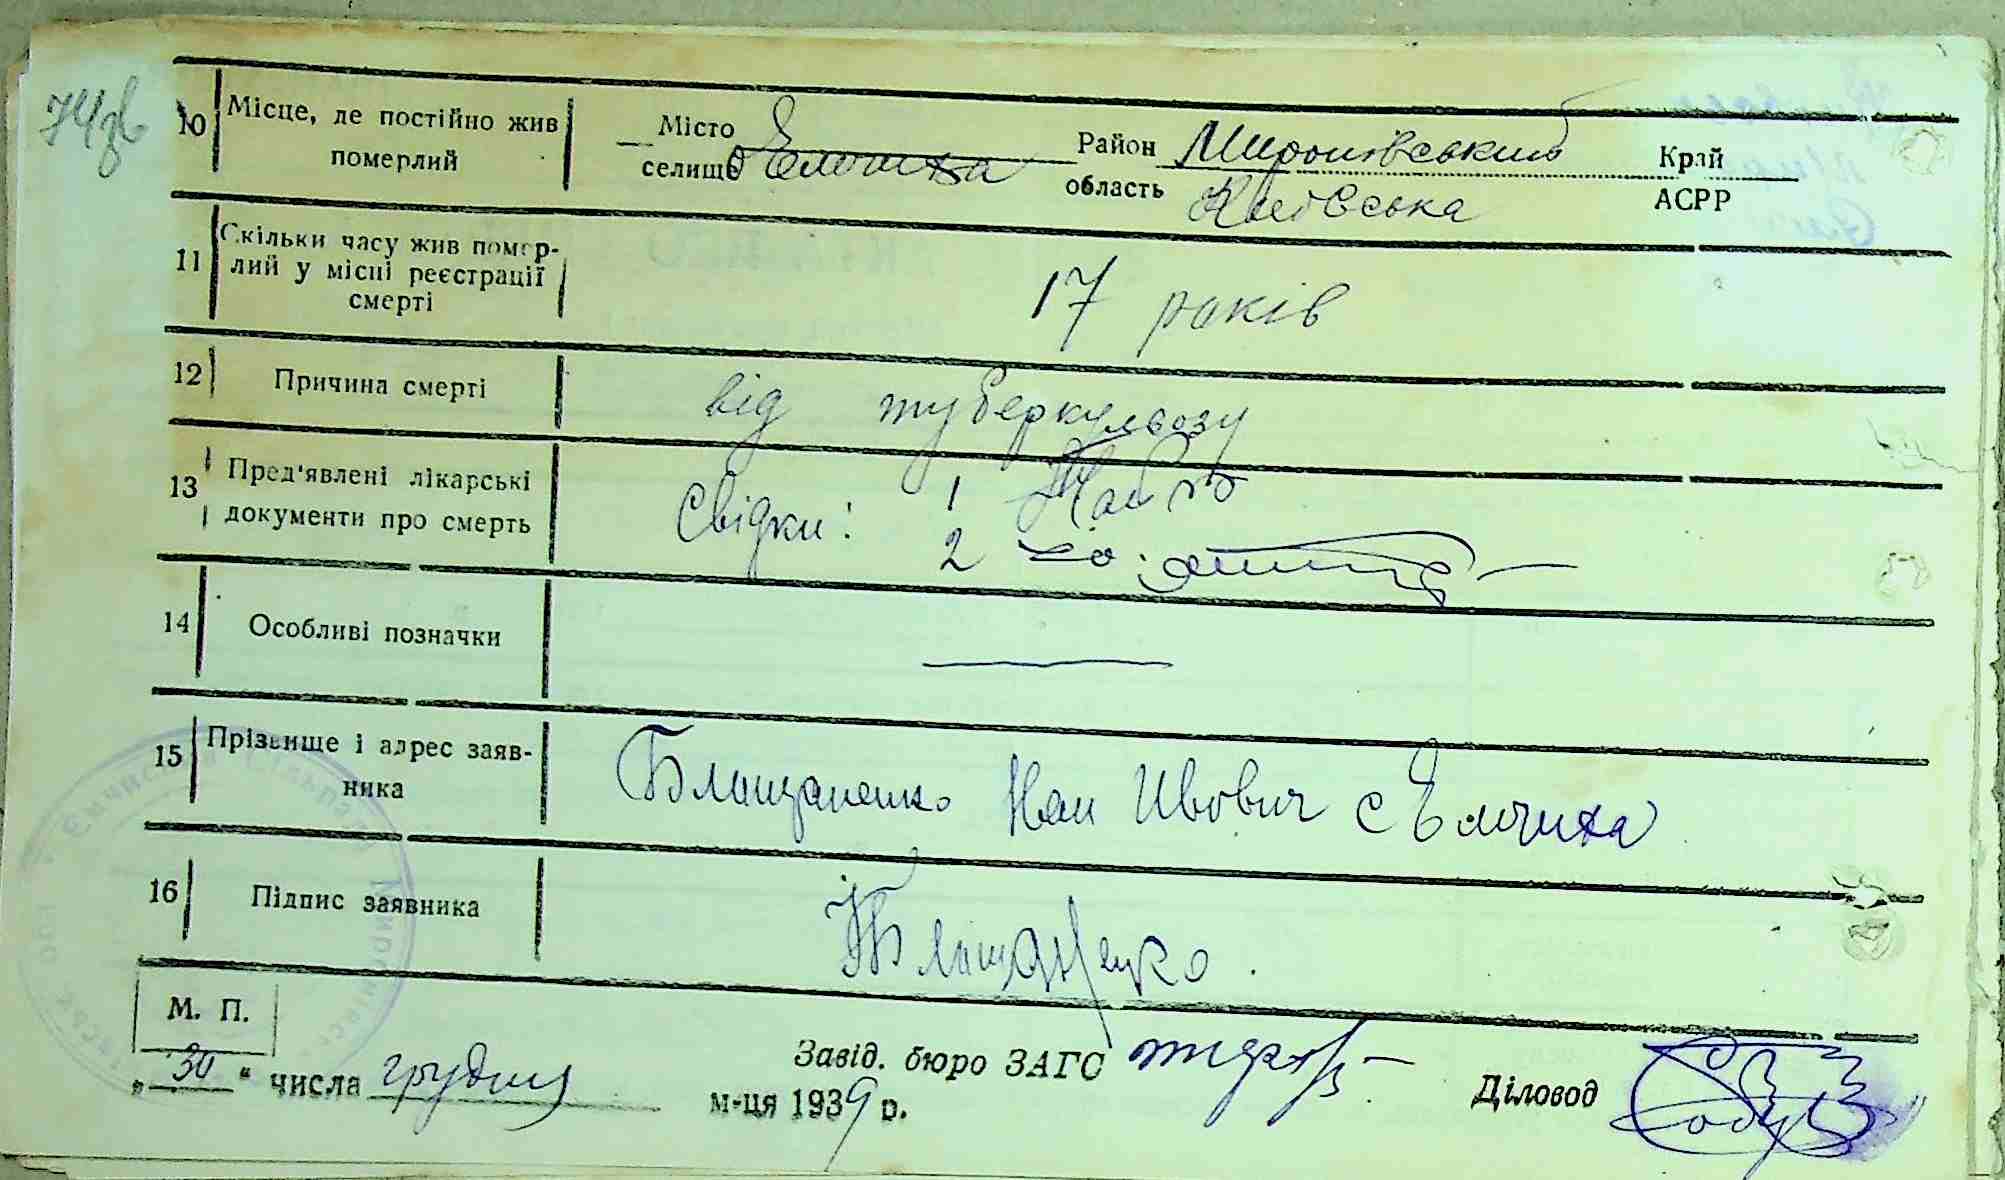 74зв
10 Місце, де постійно жив померлий
Місто селище Емчиха Район Миронівський Край
область Київська АСРР
11 Скільки часу жив помер-
лий у місці реєстрації
смерті
17 років
12 Причина смерті
від туберкульозу
13 Пред'явлені лікарські
документи про смерть
Свідки: 1
2
14 Особливі позначки
15 Прізвище і адрес заяв-
ника
Блищаненко Иван Ивович с Емчиха
16 Підпис заявника
Блищаненко
М. П.
Завід. бюро ЗАГС
Діловод
„30“ числа грудня м-ця 1939 р.